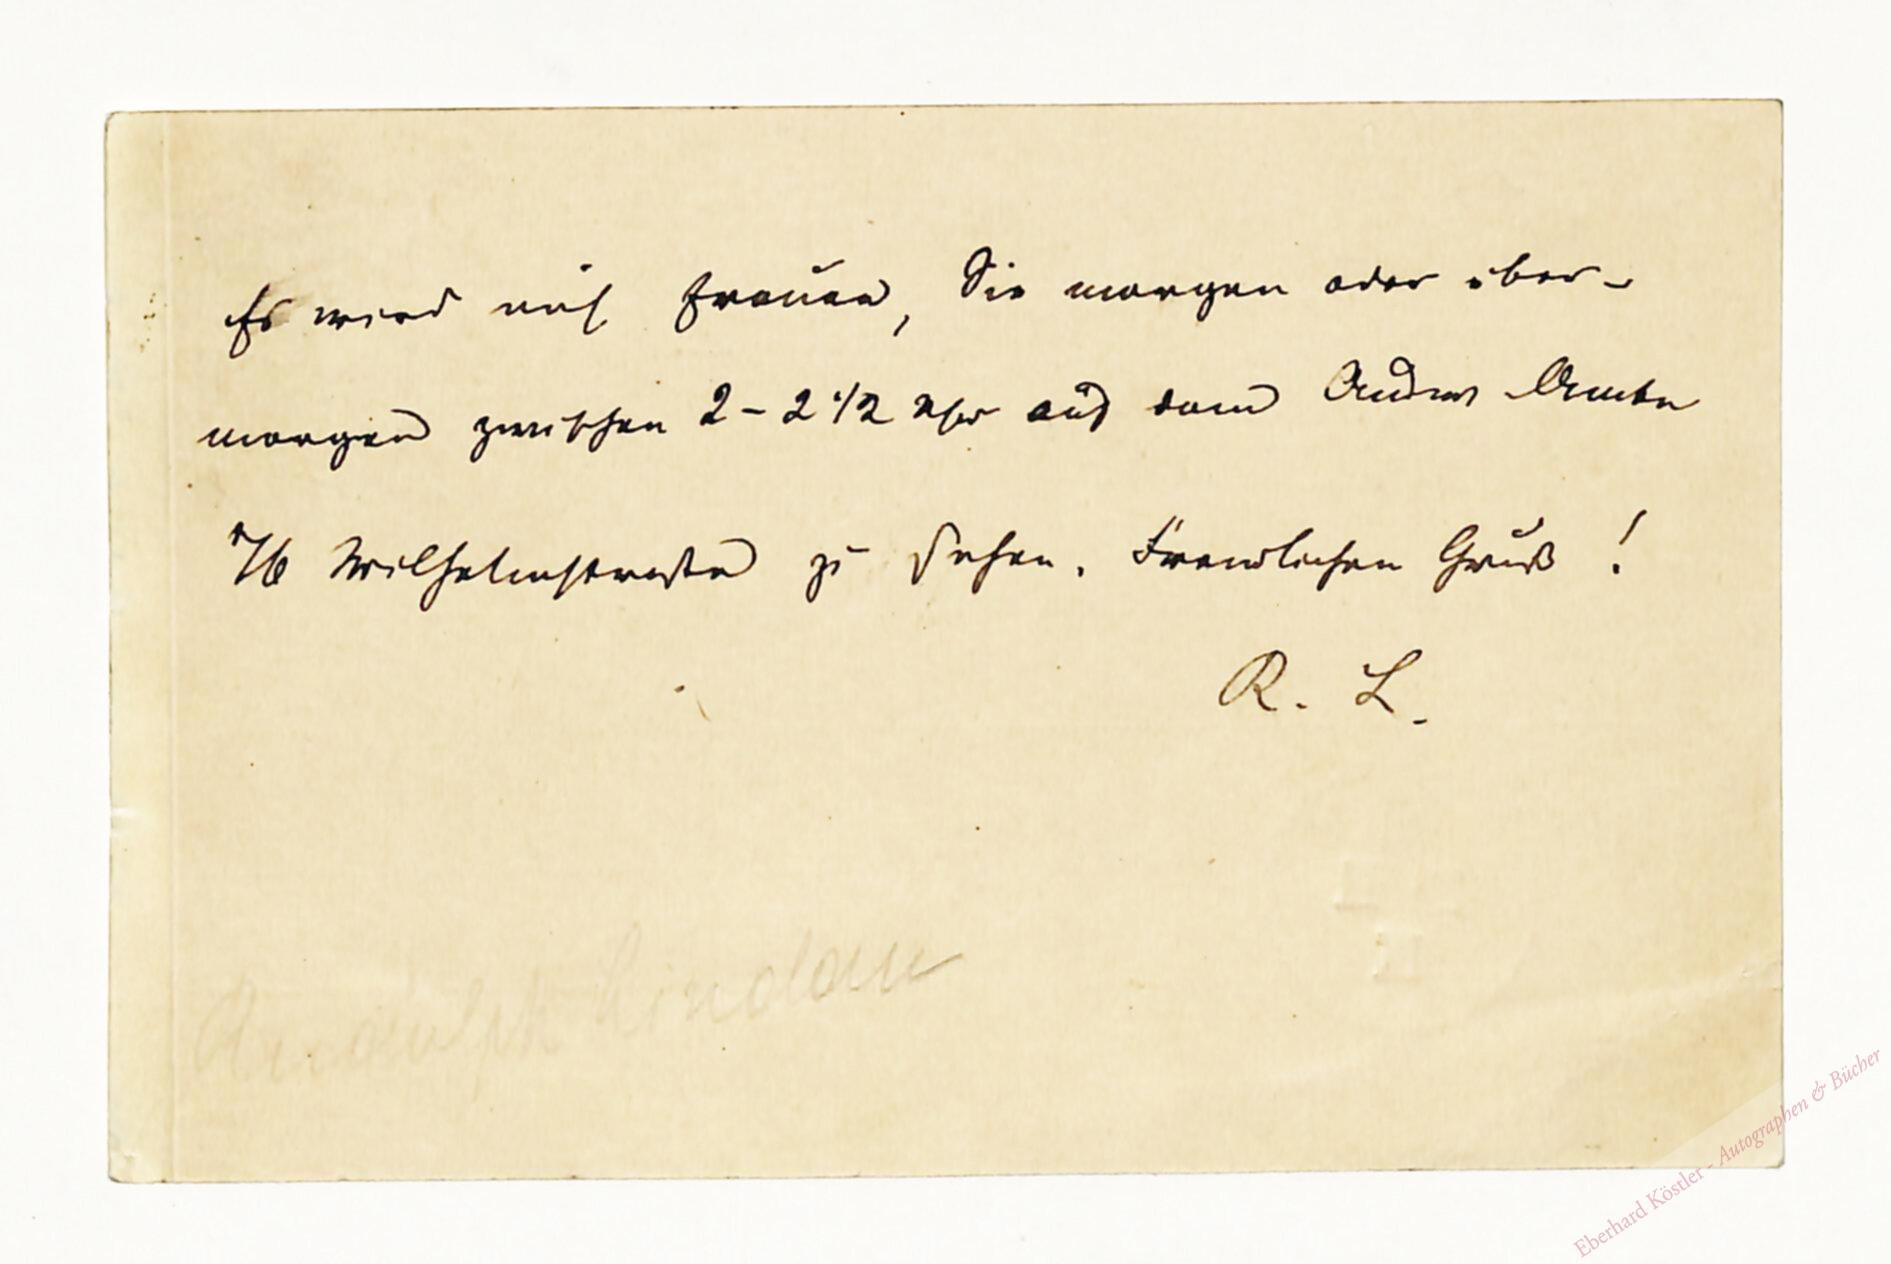 Es wird mich freuen, Sie morgen oder über-
morgen zwischen 2 – 2 1/2 Uhr auf dem Ausw Amte
76 Wilhelmstraße zu sehen. Freundlichen Gruß !
R. L.
Rudolph Lindau
Eberhard Köstler - Autographen & Bücher